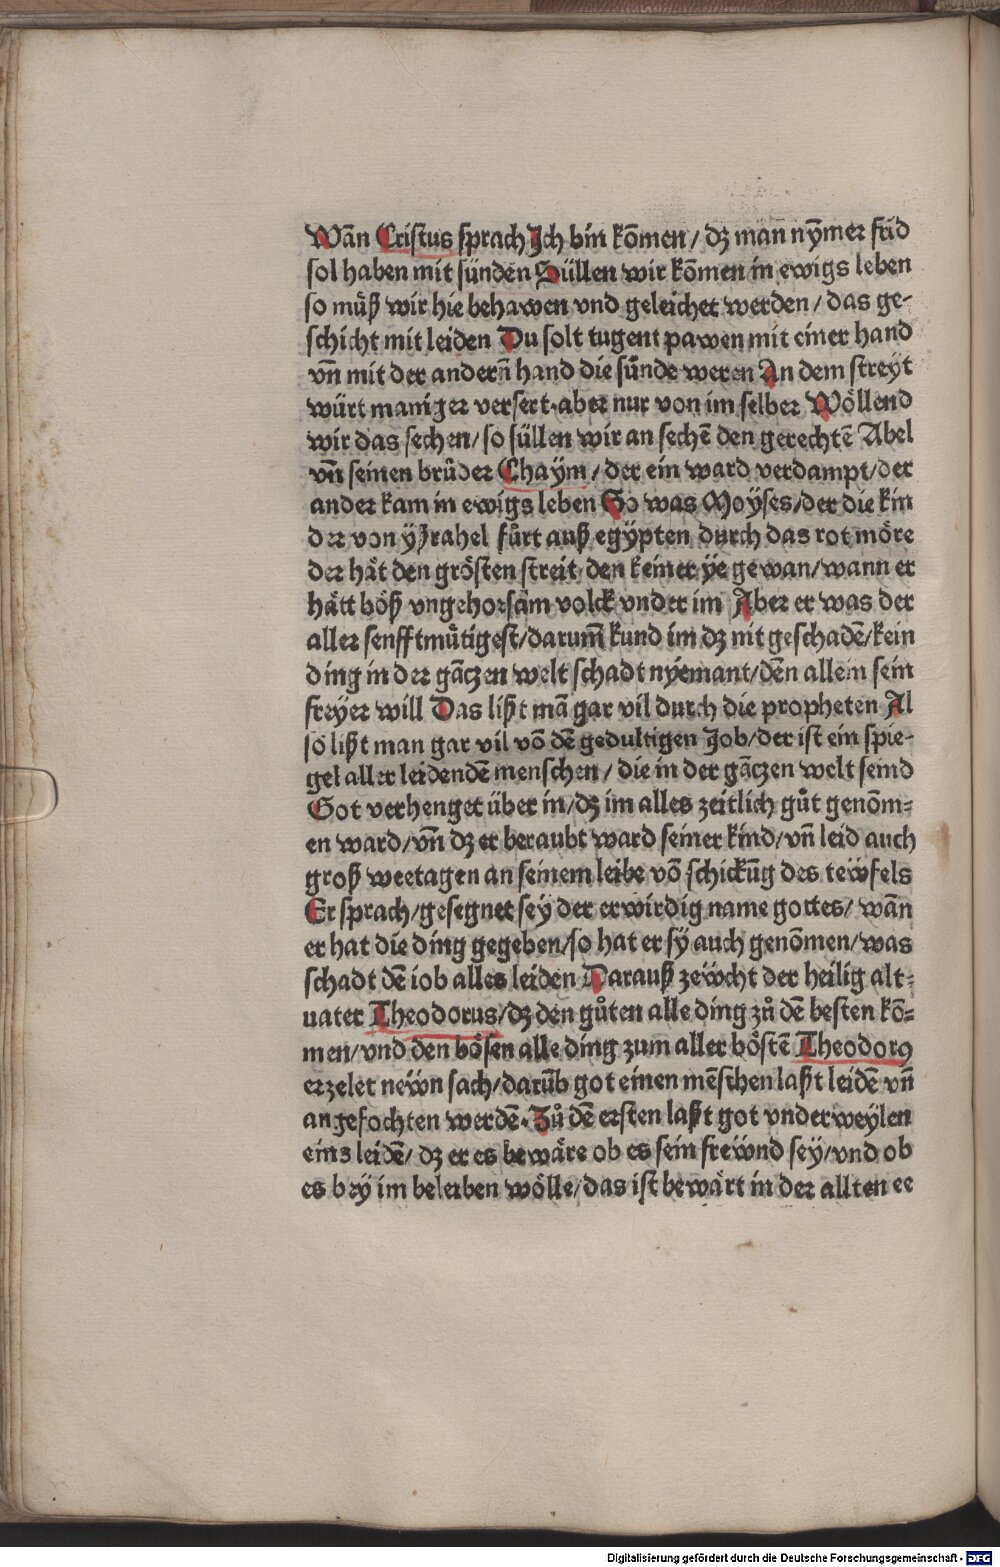 Wañ Cristus sprach Ich bin kōmen/ dʒ man nȳmer frid
sol haben mit sünden Süllen wir kōmen in ewigs leben
so müß wir hie behawen vnd geleichet werden/ das ge-
schicht mit leiden Du solt tugent pawen mit einer hand
vñ mit der anderñ hand die sünde weren An dem streyt
würt maniger versert·aber nur von im selber Wöllend
wir das sechen/ so süllen wir an sechē den gerechtē Abel
vñ seinen brůder Chaym/ der ein ward verdampt/der
ander kam in ewigs leben So was Moyses/der die kin
der von yʒrahel fůrt auß egypten durch das rot möre
der hät den grösten streit·den keiner ye gewan/wann er
hätt böß vngehorsam volck vnder im Aber er was der
aller senfftmůtigest/darum̄ kund im dʒ nit geschadē/kein
ding in der gāczen welt schadt nyemant/dēn allein sein
freyer will Das lißt mā gar vil durch die propheten Al
so lißt man gar vil vō dē gedultigen Job/der ist ein spie-
gel aller leidendē menschen/ die in der gāczen welt seind
Got verhenget über in/dʒ im alles zeitlich gůt genōm=
en ward/vñ dʒ er beraubt ward seiner kind/vñ leid auch
groß weetagen an seinem leibe vō schickūg des tewfels
Er sprach/gesegnet sey der erwirdig name gottes/ wān
er hat die ding gegeben/so hat er sy auch genōmen/was
schadt dē iob alles leiden Darauß zewcht der heilig alt=
uater Theodorus/dʒ den gůten alle ding zů dē besten kō=
men/vnd den bösen alle ding zum aller böstē Theodorꝰ
erzelet newn sach/darūb got einen mēschen laßt leidē vñ
angefochten werdē·Zů dē ersten laßt got vnderweylen
eins leidē/ dʒ er es bewäre ob es sein frewnd sey/vnd ob
es bey im beleiben wölle/das ist bewärt in der allten ee
Digitalisierung gefördert durch die Deutsche Forschungsgemeinschaft - DFG